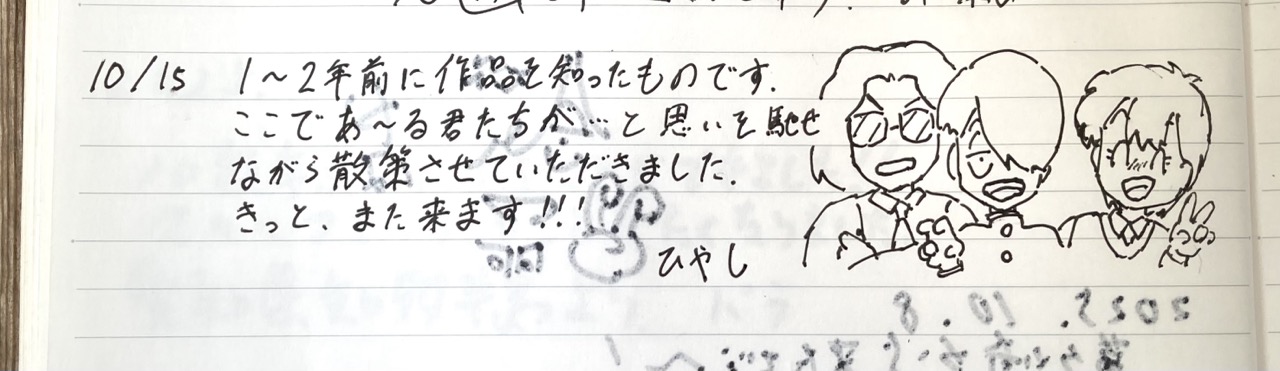 10/15 1～2年前に作品を知ったものです.
ここであ～る君たちが…と思いを馳せ
ながら散策させていただきました.
きっと、また来ます!!!
ひやし
2025. 10. 8